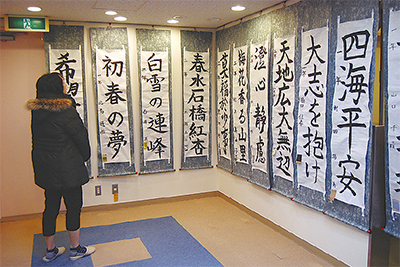 四海平安
大志を抱け
天地広大無辺
澄心静慮
梅花香る山里
春水石橋紅杏
白雪の連峰
初春の夢
希望